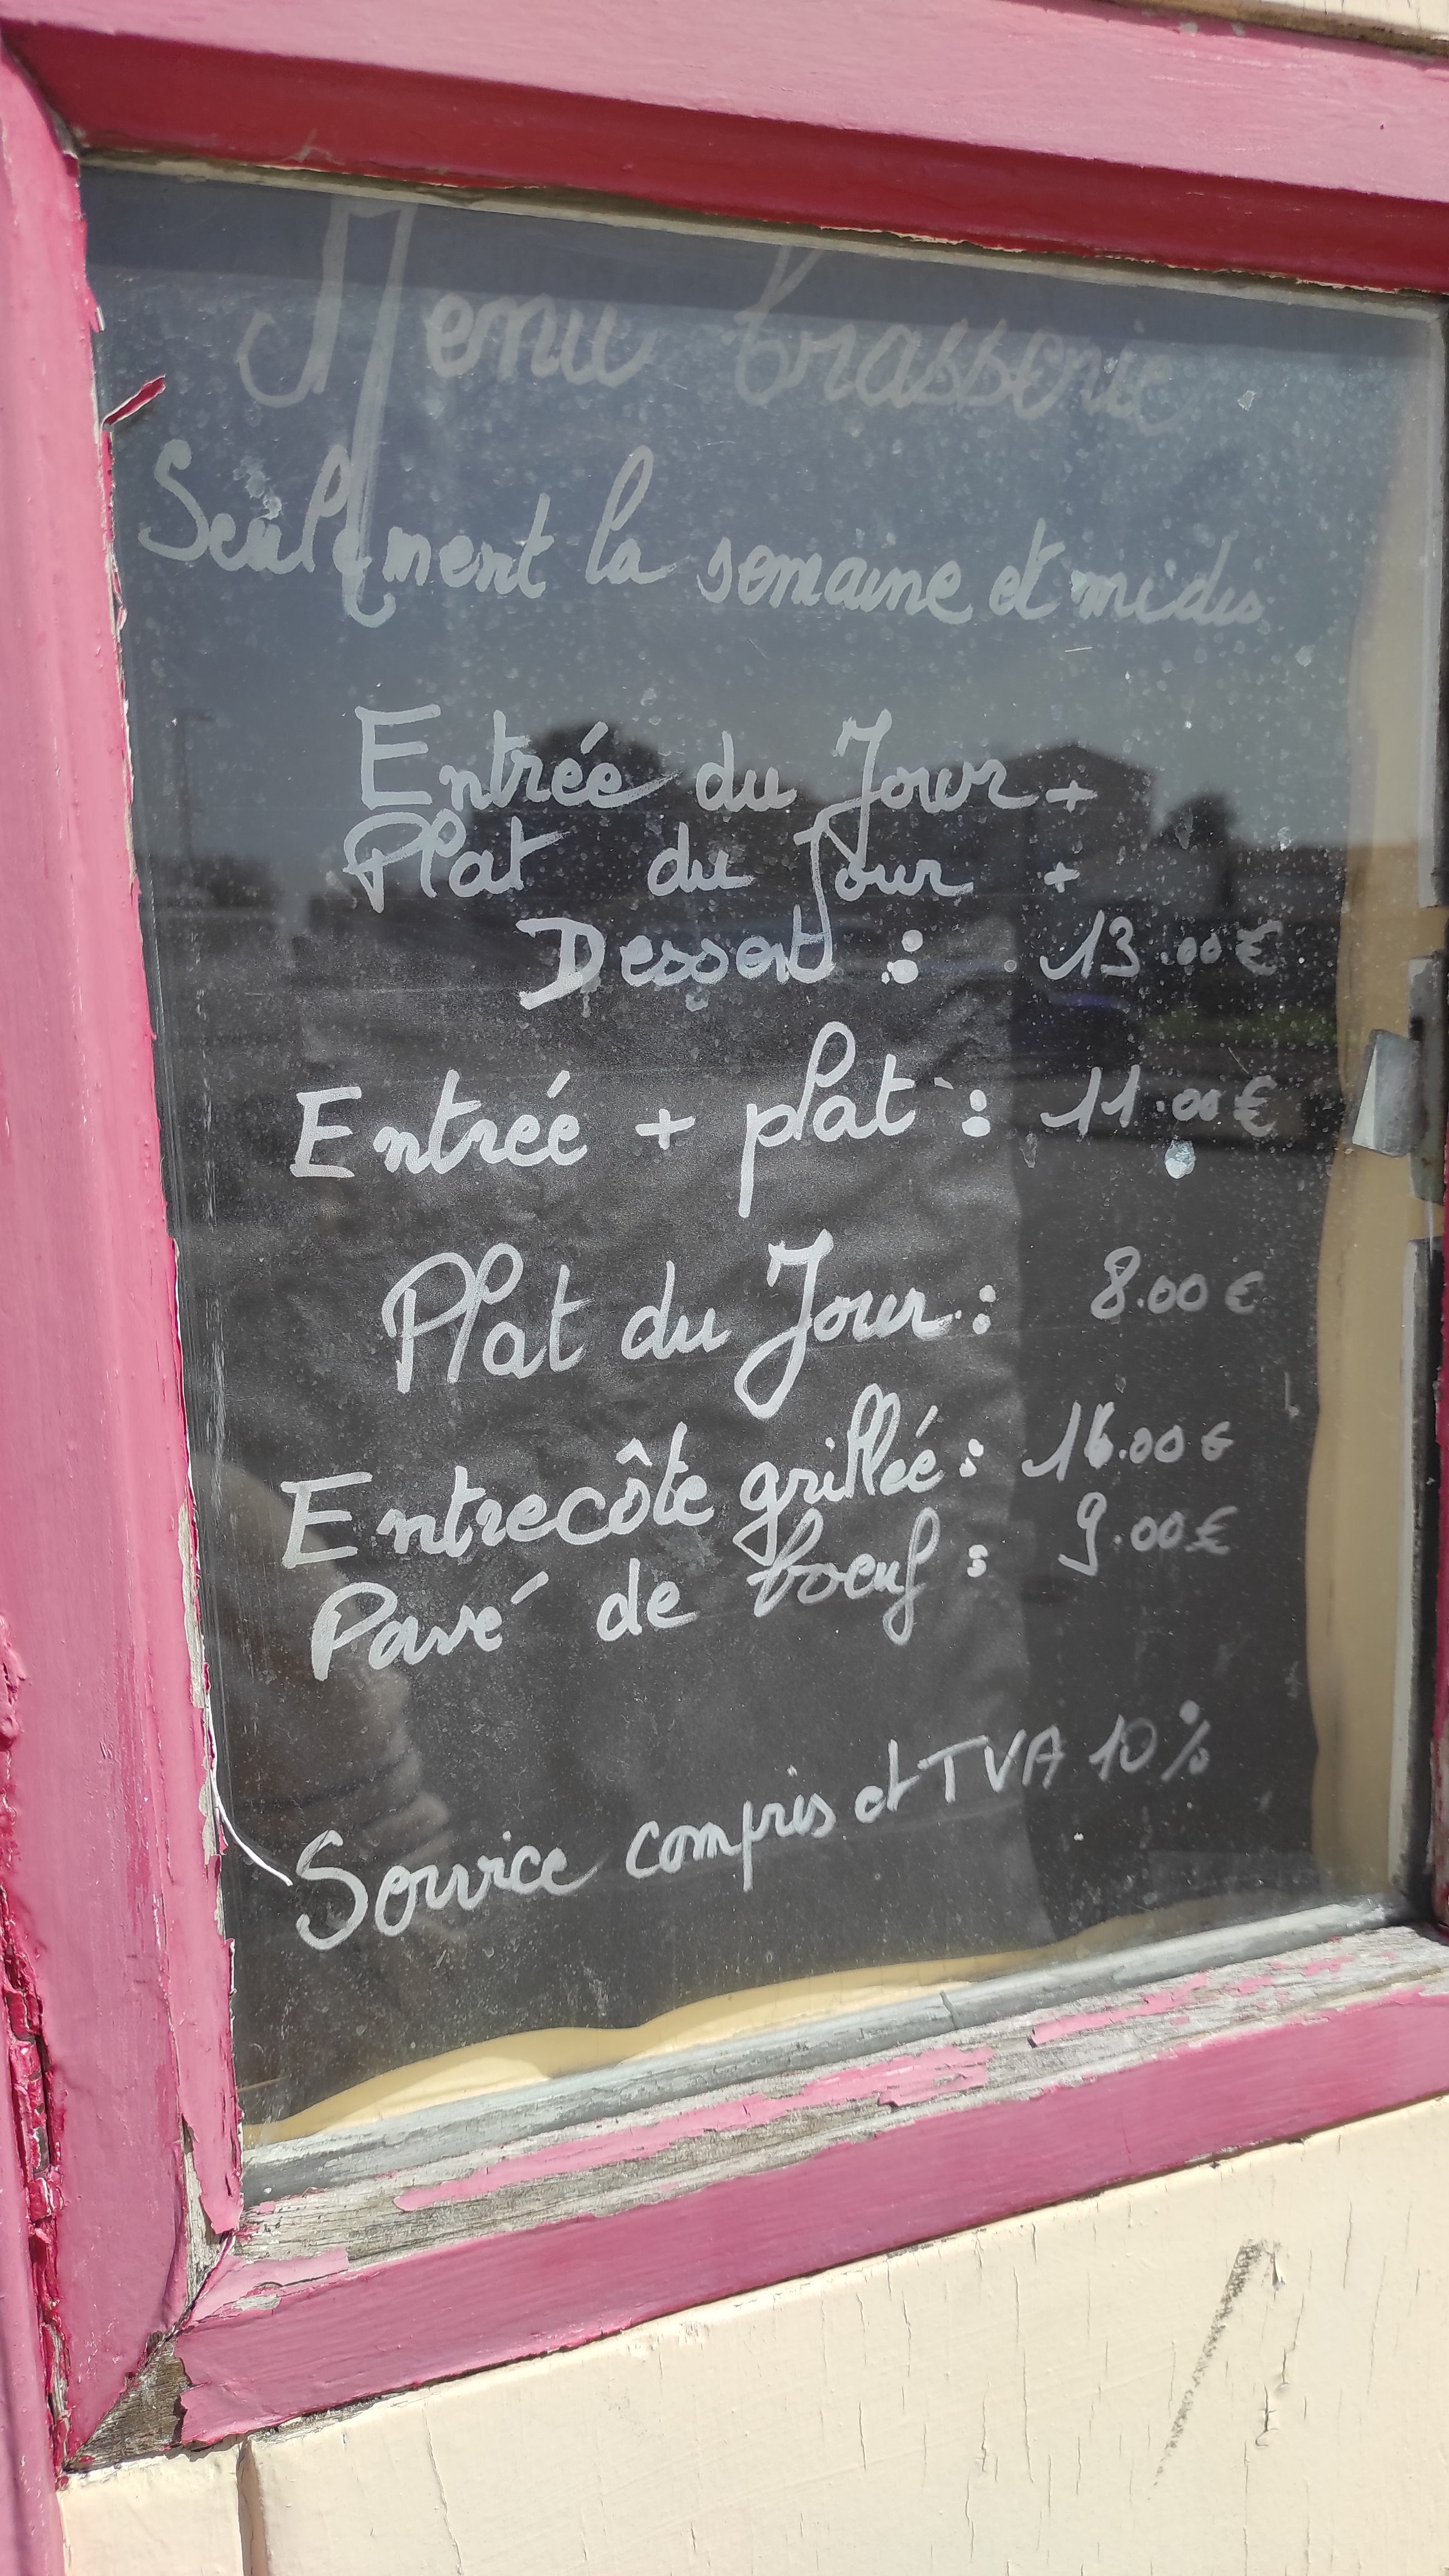 Menu brasserie
Seulement la semaine et midis
Entrée du Jour +
Plat du Jour +
Dessert : 13.00€
Entrée + plat : 11.00€
Plat du Jour : 8.00€
Entrecôte grillée : 16.00€
Pavé de boeuf : 9.00€
Service compris et TVA 10%